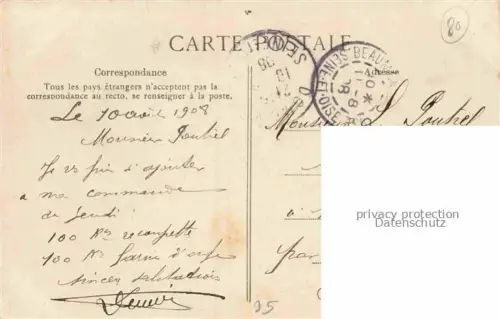 80
CARTE POSTALE
Correspondance
Tous les pays étrangers n'acceptent pas la
correspondance au recto. se renseigner à la poste.
Adresse
SEINE
BEAUM
SEINE-ET-OISE
Le 10 août 1908
Monsieur Poutiel
Je vs prie d'ajouter
a ma commande
de jeudi :
100 Kos recoupette
100 Ks farine d'orge
sincer salutations
Monsieur L Poutiel
à
par
privacy protection
Datenschutz
35